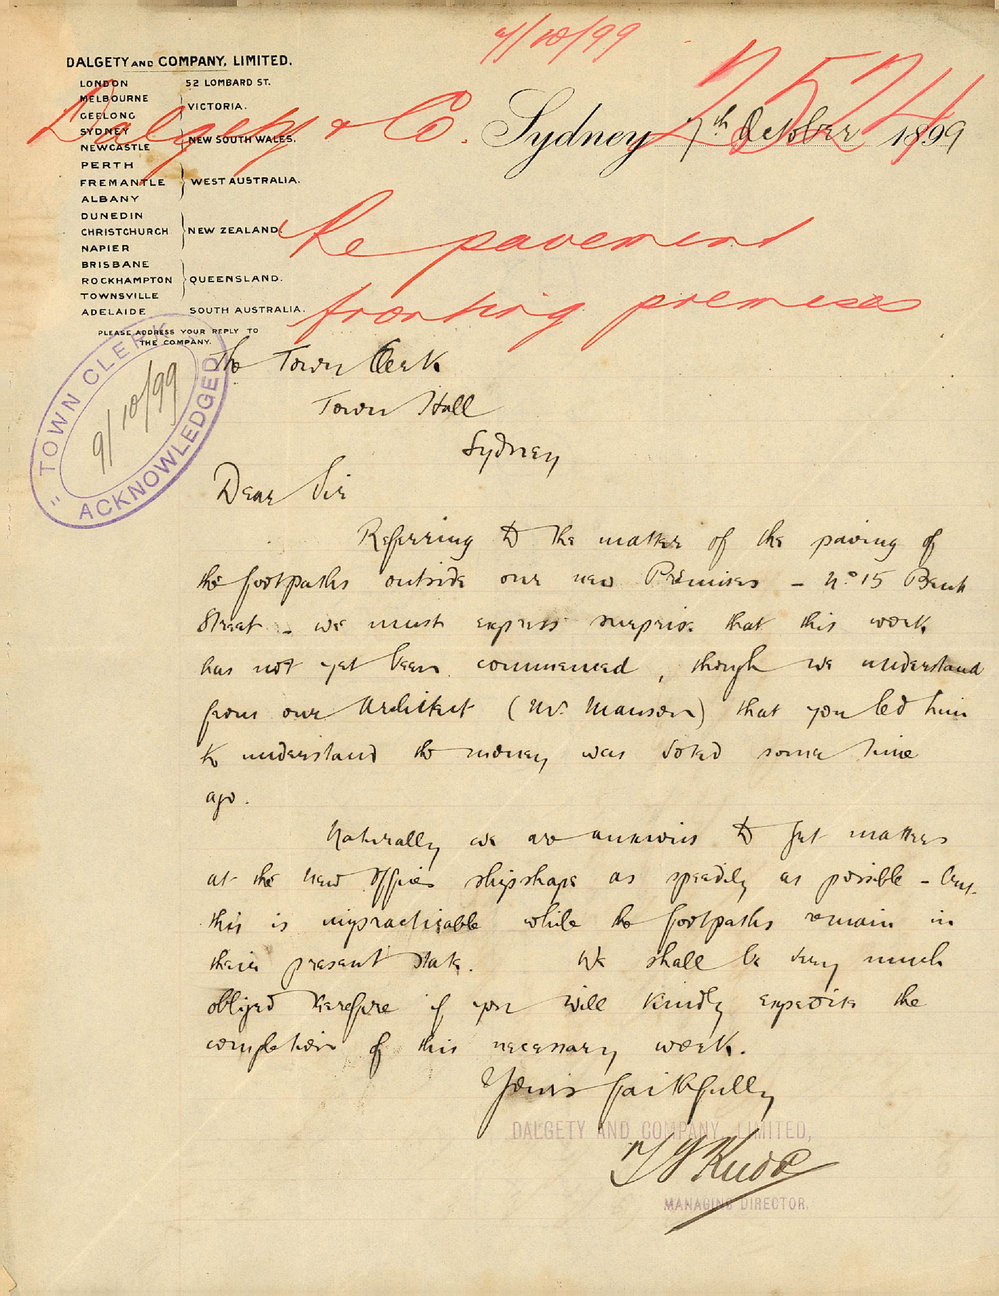 7/10/99
2524
DALGETY AND COMPANY, LIMITED.
LONDON 52 LOMBARD ST.
MELBOURNE
GEELONG
VICTORIA.
SYDNEY
NEWCASTLE
NEW SOUTH WALES.
PERTH
FREMANTLE
ALBANY
WEST AUSTRALIA.
DUNEDIN
CHRISTCHURCH
NAPIER
NEW ZEALAND.
BRISBANE
ROCKHAMPTON
TOWNSVILLE
QUEENSLAND.
ADELAIDE SOUTH AUSTRALIA.
PLEASE ADDRESS YOUR REPLY TO
THE COMPANY.
Dalgety & Co.
Sydney 7th October 1899
Re pavement
fronting premises
"TOWN CLERK
9/10/99
ACKNOWLEDGED
The Town Clerk
Town Hall
Sydney
Dear Sir
Referring to the matter of the paving of
the footpaths outside our new Premises - No 15 Bent
Street - we must express surprise that this work
has not yet been commenced, though we understand
from our Architect (Mr. Manson) that you led him
to understand the money was voted some time
ago.
Naturally we are anxious to get matters
at the new offices shipshape as speedily as possible - but
this is impracticable while the footpaths remain in
their present state. We shall be very much
obliged therefore if you will kindly expedite the
completion of this necessary work.
Yours faithfully
DALGETY AND COMPANY, LIMITED,
MANAGING DIRECTOR.